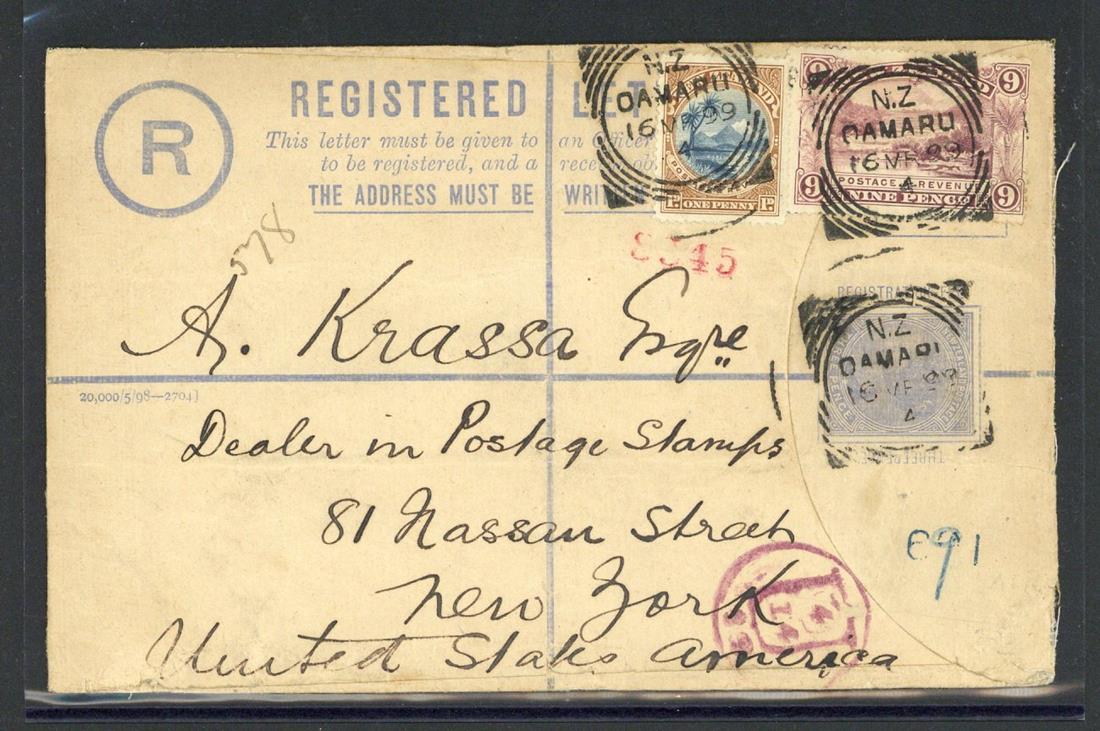 R
REGISTERED LET
This letter must be given to an Officer
to be registered, and a
THE ADDRESS MUST BE WRITTEN
N.Z
OAMARU
16 99
4
ONE PENNY
1D 1D
9 9
N.Z
OAMARU
16 99
4
POSTAGE & REVENUE
9 NINE PENCE 9
578
8345
A. Krassa Esqre
20,000/5/98—2704]
N.Z
OAMARU
16 99
4
Dealer in Postage Stamps
81 Nassau Street
New York
United States America
691